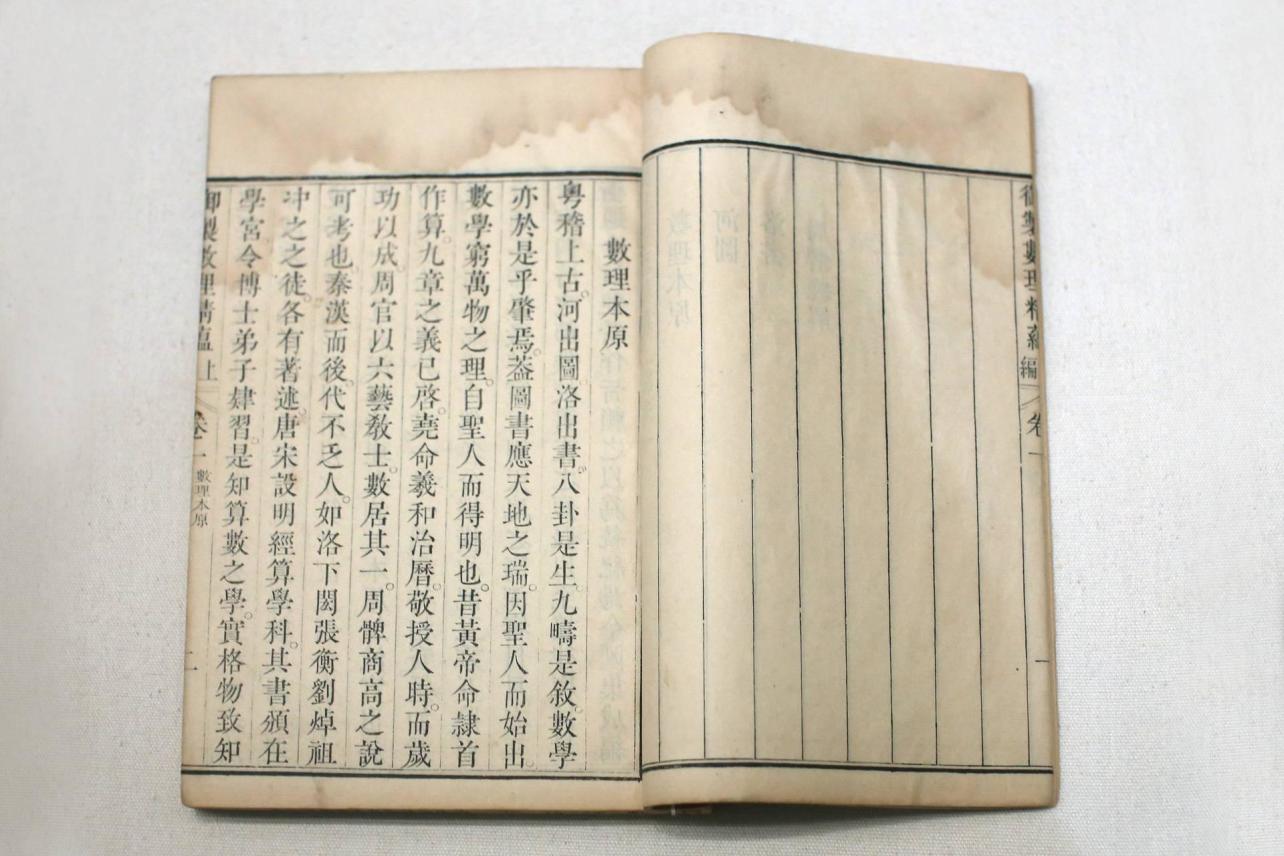 御製數理精蘊
編
卷一
一
數理本原
粤稽上古。河出圖洛出書。八卦是生。九疇是敘。數學
亦於是乎肇焉。葢圖書應天地之瑞。因聖人而始出。
數學窮萬物之理。自聖人而得明也。昔黃帝命隸首
作算。九章之義已啓。堯命羲和治曆。敬授人時。而歲
功以成。周官以六藝敎士。數居其一。周髀商高之說
可考也。秦漢而後。代不乏人。如洛下閎張衡劉焯祖
冲之之徒。各有著述。唐宋設明經算學科。其書頒在
學宮。令博士弟子肄習。是知算數之學。實格物致知
御製數理精蘊上
卷一
數理本原
二